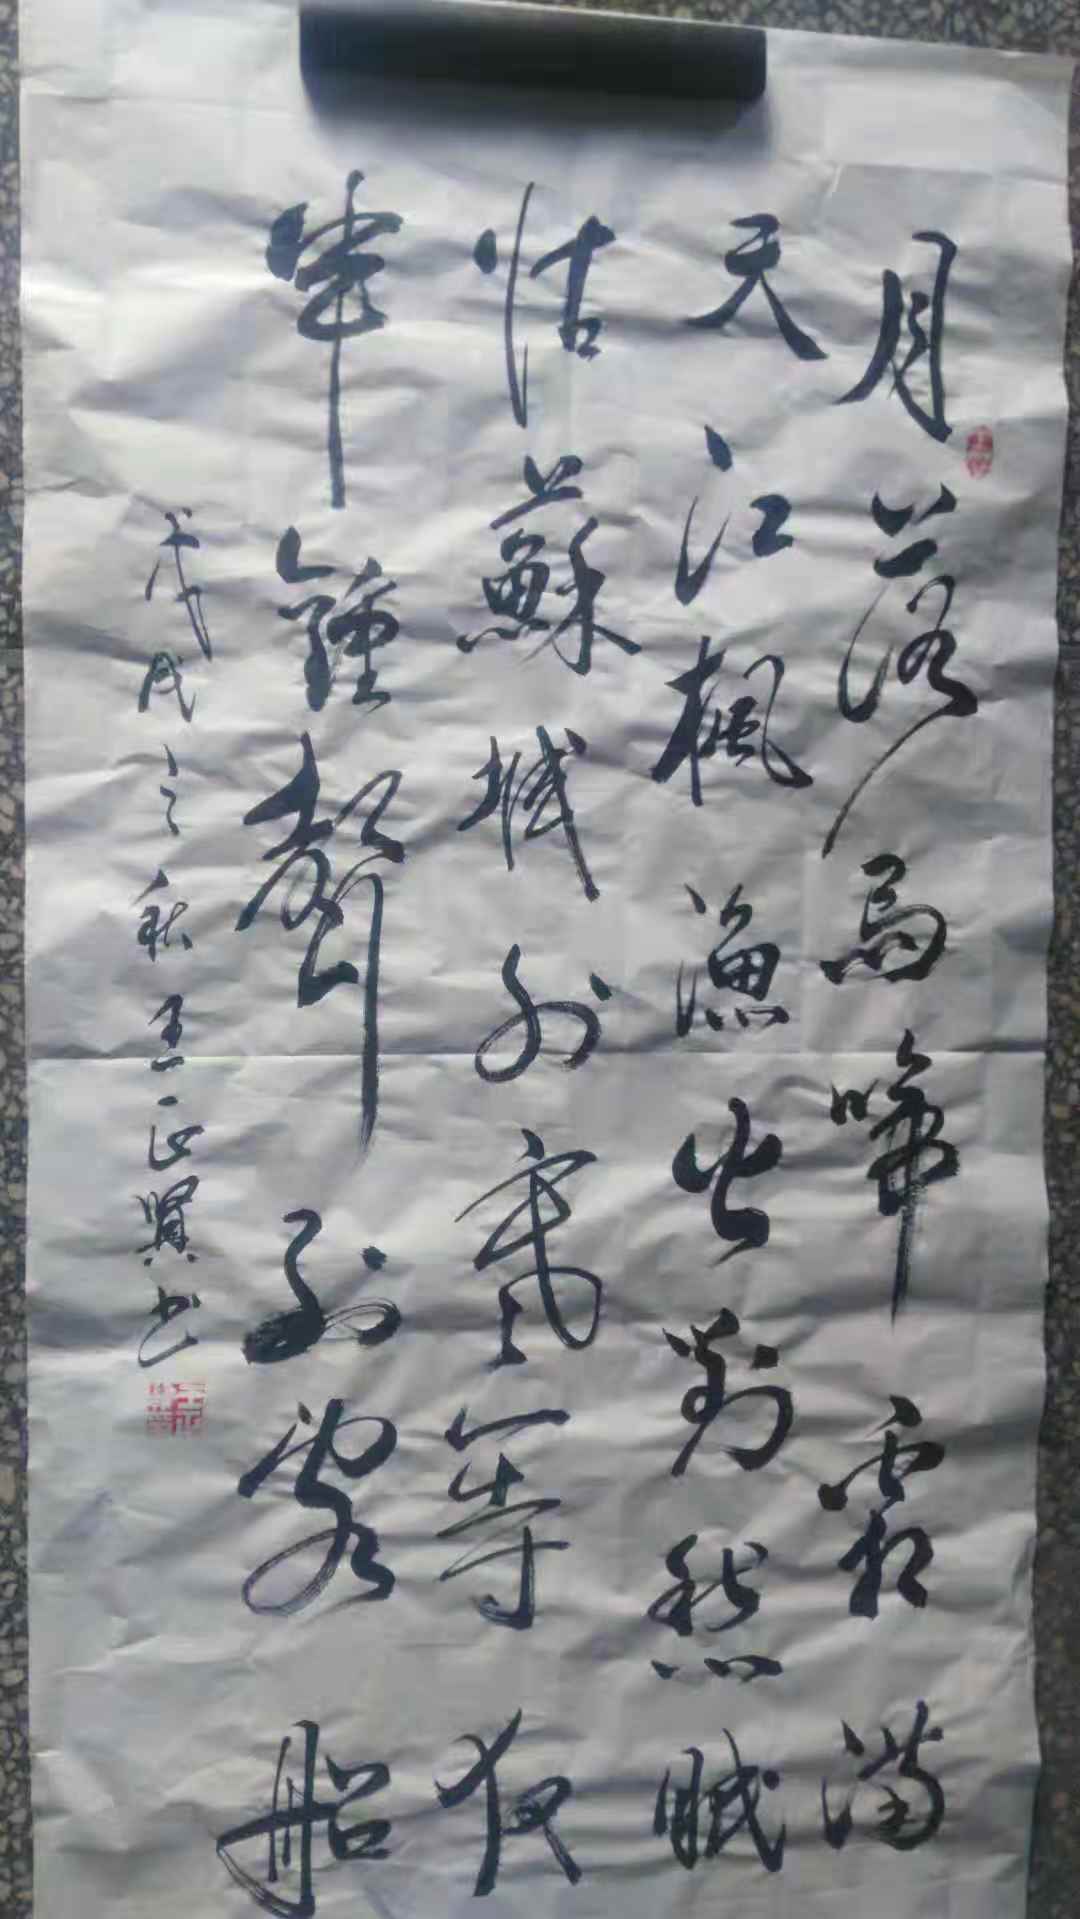 月落烏啼霜滿
天江楓漁火對愁眠
姑蘇城外寒山寺夜
半鐘聲到客船
戊戌之秋王正賢书